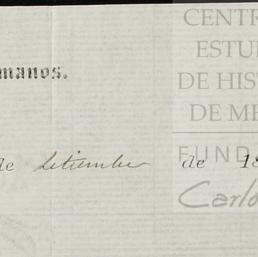 CENTR
ESTU
manos.
DE HIS
DE ME
FUND
de setiembre de 18
Carlo